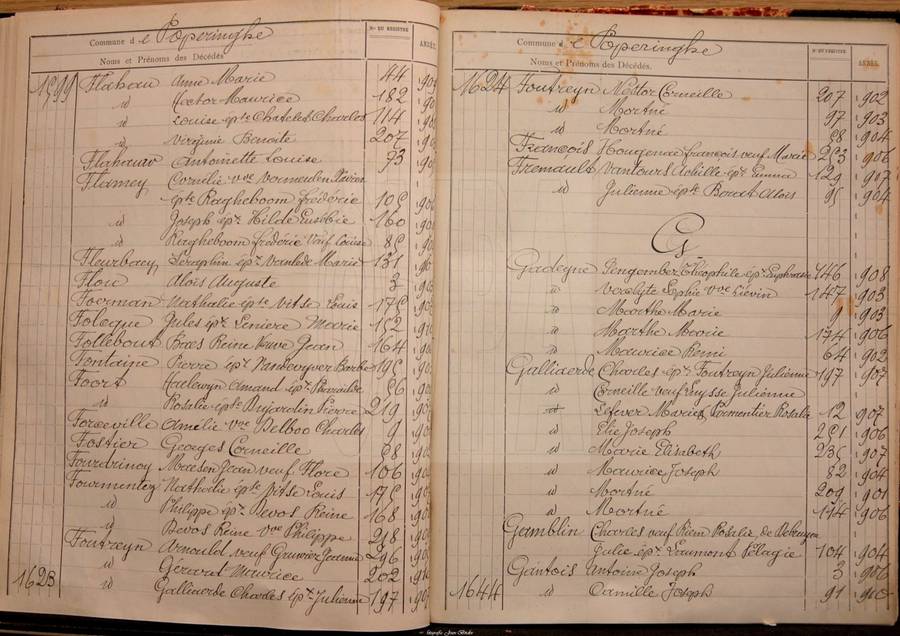 Commune de Poperinghe
Nos DU REGISTRE
ANNÉES
Noms et Prénoms des Décédés
1599 Flahau Anne Marie 44
id Hector Maurice 182
id Louise épse Chatelet Charles 114
id Virginie Benoite 207
Flahauw Antoinette Louise 93
Flamey Cornélie vve Vermeulen
épse Ragheboom Frédéric 105
id Joseph épx Hilde Eusébie 160
id Ragheboom Frédéric Veuf Louise 85
Fleurbaey Séraphin épx Marie 131
Flou Aloïs Auguste 3
Foerman Nathalie épse Vitse Louis 175
Folcque Jules épx Leniere Marie 152
Follebout Baes Reine Veuve Jean 164
Fontaine Pierre épx Vandecuyver Barbe 195
Foort Halewyn Amand épx 56
id Rosalie épse Dujardin Pierre 219
Forceville Amélie vve Delboo Charles 9
Fostier Georges Corneille 58
Fourdrinoy Maesen Jean veuf Flore 106
Fourmentez Nathalie épse Vitse Louis 175
id Philippe épx Devos Reine 168
id Devos Reine vve Philippe 218
Foutreyn Arnould veuf Jeanne 296
id Gérard Maurice 202
1623 id Galliaerde Charles épx Julienne 197
Commune de Poperinghe
Nos DU REGISTRE
ANNÉES
Noms et Prénoms des Décédés.
1624 Foutreyn Nestor Corneille 207 902
id Mortné 97 903
id Mortné 58 904
François Hougenac François veuf Marie 253 906
Fremault Vantours Achille épx Emma 129 907
id Julienne épse Borat Aloïs 95 904
G
Gadeyne Pengember Théophile épx Euphrasie 446 908
id Verelyte Sophie vve Liévin 147 903
id Marthe Marie 9 903
id Marthe Marie 174 906
id Maurice Remi 64 902
Galliaerde Charles épx Foutreyn Julienne 197 907
id Corneille veuf Luysse Julienne
id Lefever Marie Parmentier Rosalie 12 907
id Elie Joseph 251 906
id Marie Elisabeth 235 907
id Maurice Joseph 82 904
id Mortné 209 901
id Mortné 174 906
Gamblin Charles veuf Rosalie de
Julie épx Laumont Pélagie 104 904
Gantois Antoine Joseph 3 906
1644 id Camille Joseph 91